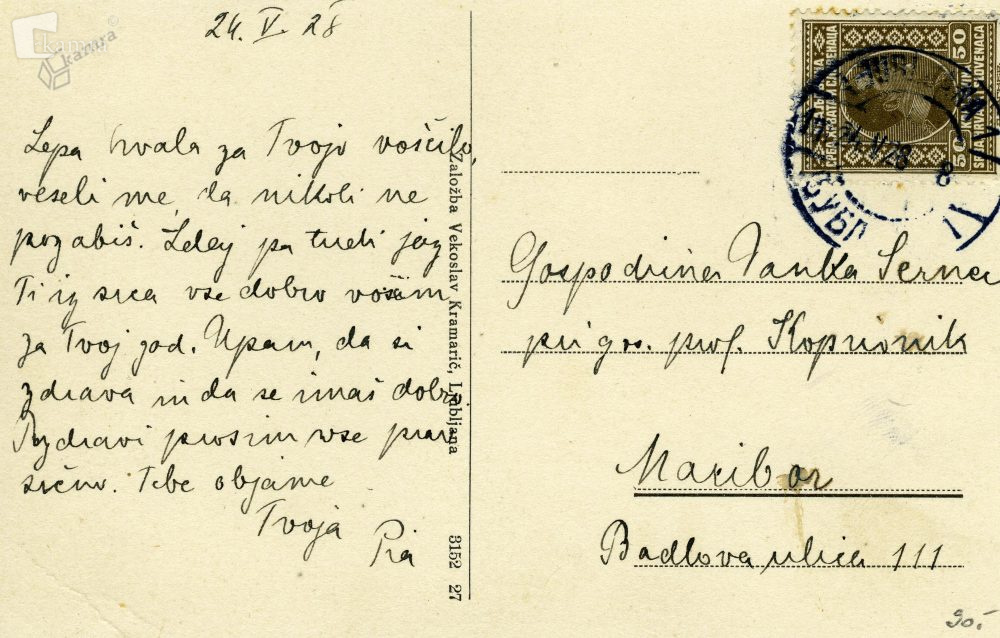 24. V. 28
Lepa hvala za Tvojo voščilo,
veseli me, da nikoli ne
pozabiš. Sedaj pa tudi jaz
Ti iz srca vse dobro voščim
za Tvoj god. Upam, da si
zdrava in da se imaš dobro.
Pozdravi prosim vse prav
srčno. Tebe objame
Tvoja
Pia
Založba Vekoslav Kramarič, Ljubljana
3152 27
50 50
24. V. 28 8
Gospodična Vanka Sernec
pri gos. prof. Koprivnik
Maribor
Badlova ulica 111
90.-
kamra